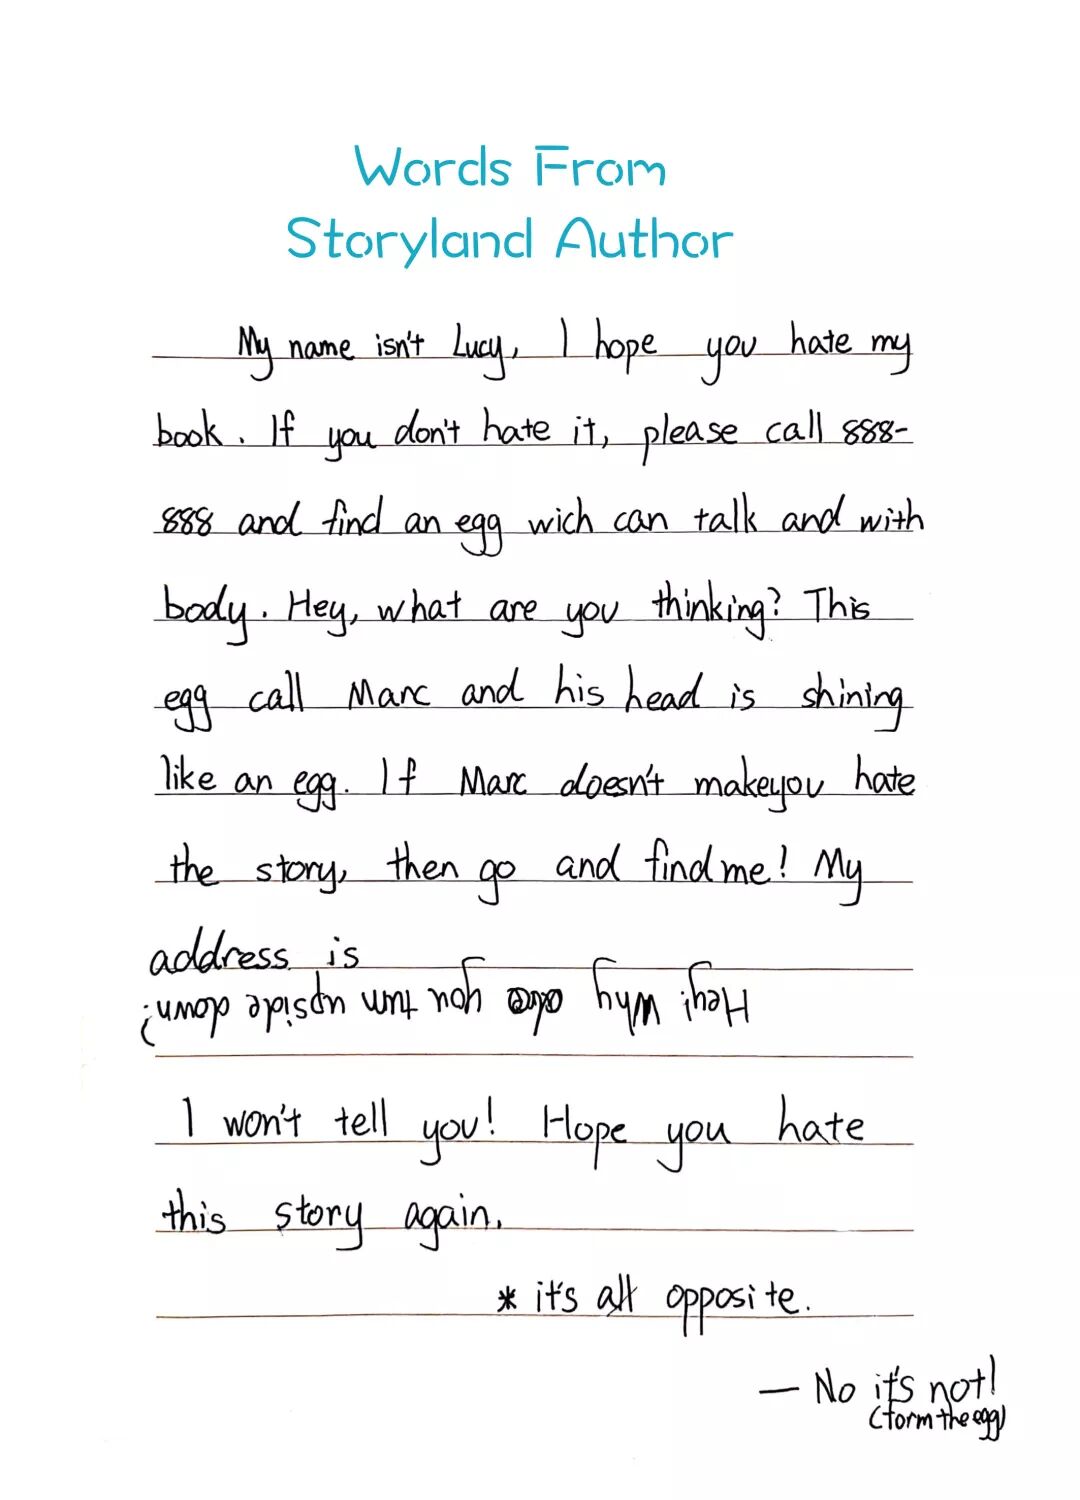 Words From
Storyland Author
My name isn't Lucy, I hope you hate my
book. If you don't hate it, please call 888-
888 and find an egg wich can talk and with
body. Hey, what are you thinking? This
egg call Marc and his head is shining
like an egg. If Marc doesn't makeyou hate
the story, then go and find me! My
address is
Hey! Why you turn upside down?
I won't tell you! Hope you hate
this story again.
* it's all opposite.
— No it's not!
(form the egg)